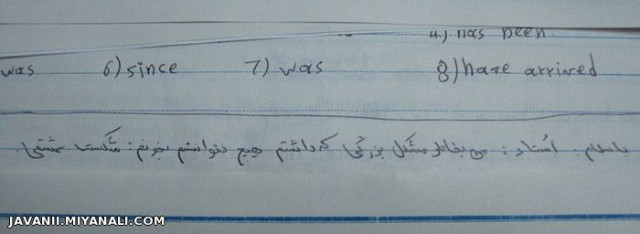 4) has been
was 6) since 7) was 8) have arrived
باسلام. استاد: من بخاطر مشکل بزرگی که داشتم هیچ نتوانستم بخونم: شکست عشقی.
JAVANII.MIYANALI.COM